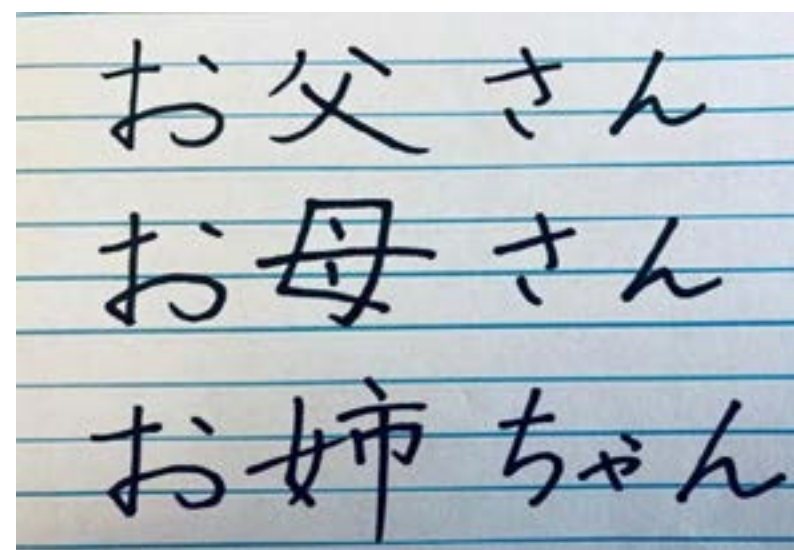 お父さん
お母さん
お姉ちゃん